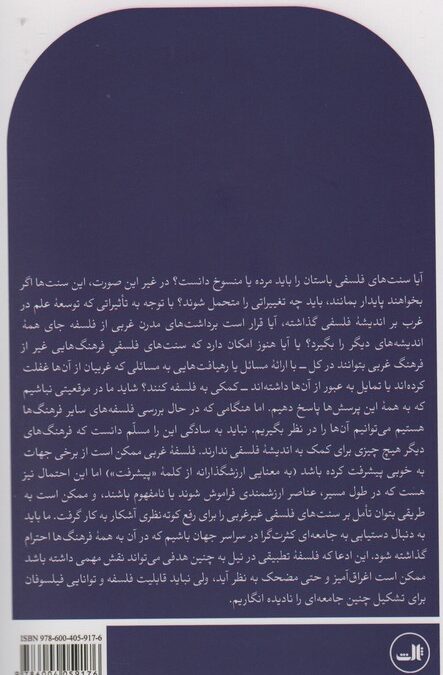 آیا سنت‌های فلسفی باستان را باید مرده یا منسوخ دانست؟ در غیر این صورت، این سنت‌ها اگر
بخواهند پایدار بمانند، باید چه تغییراتی را متحمل شوند؟ با توجه به تأثیراتی که توسعهٔ علم در
غرب بر اندیشهٔ فلسفی گذاشته، آیا قرار است برداشت‌های مدرن غربی از فلسفه جای همهٔ
اندیشه‌های دیگر را بگیرد؟ یا آیا هنوز امکان دارد که سنت‌های فلسفیِ فرهنگ‌هایی غیر از
فرهنگ غربی بتوانند در کل ــ با ارائهٔ مسائل یا رهیافت‌هایی به مسائلی که غربیان از آن‌ها غفلت
کرده‌اند یا تمایل به عبور از آن‌ها داشته‌اند ــ کمکی به فلسفه کنند؟ شاید ما در موقعیتی نباشیم
که به همهٔ این پرسش‌ها پاسخ دهیم. اما هنگامی که در حال بررسی فلسفه‌های سایر فرهنگ‌ها
هستیم می‌توانیم آن‌ها را در نظر بگیریم. نباید به سادگی این را مسلّم دانست که فرهنگ‌های
دیگر هیچ چیزی برای کمک به اندیشهٔ فلسفی ندارند. فلسفهٔ غربی ممکن است از برخی جهات
به خوبی پیشرفت کرده باشد (به معنایی ارزشگذارانه از کلمهٔ «پیشرفت») اما این احتمال نیز
هست که در طول مسیر، عناصر ارزشمندی فراموش شوند یا نامفهوم باشند، و ممکن است به
طریقی بتوان تأمل بر سنت‌های فلسفی غیرغربی را برای رفع کوته‌نظری آشکار به کار گرفت. ما باید
به دنبال دستیابی به جامعه‌ای کثرت‌گرا در سراسر جهان باشیم که در آن به همهٔ فرهنگ‌ها احترام
گذاشته شود. این ادعا که فلسفهٔ تطبیقی در نیل به چنین هدفی می‌تواند نقش مهمی داشته باشد
ممکن است اغراق‌آمیز و حتی مضحک به نظر آید، ولی نباید قابلیت فلسفه و توانایی فیلسوفان
برای تشکیل چنین جامعه‌ای را نادیده انگاریم.
ISBN 978-600-405-917-6
9786004059176
ثالث